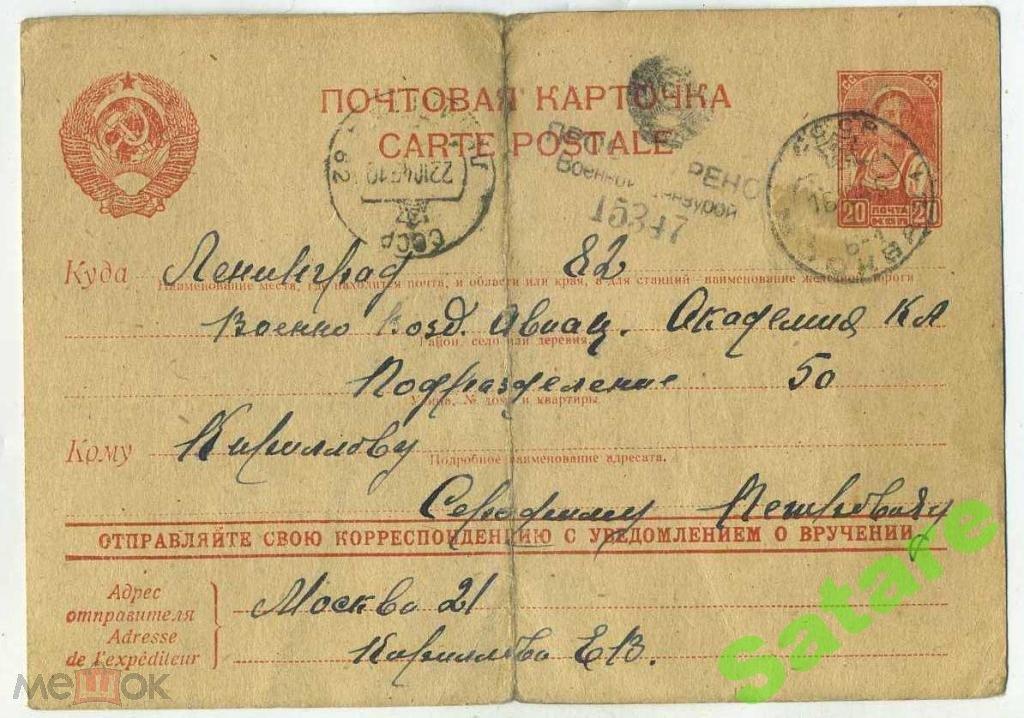 ПОЧТОВАЯ КАРТОЧКА
CARTE POSTALE
СССР
20 ПОЧТА 20
КОП
Военной Цензурой
15347
СССР
МОСКВА
Куда Ленинград 82
Наименование места, где находится почта, и области или края, а для станций-наименование железной дороги
Военно Возд. Авиац. Академия КА
Район, село или деревня
Подразделение 50
Улица, № дома и квартиры.
Кому Кириллову
Подробное наименование адресата.
Серафиму Петровичу
ОТПРАВЛЯЙТЕ СВОЮ КОРРЕСПОНДЕНЦИЮ С УВЕДОМЛЕНИЕМ О ВРУЧЕНИИ
Адрес
отправителя
Adresse
de l'expéditeur
Москва 21
Кириллова Е.В.
Satare
мешок